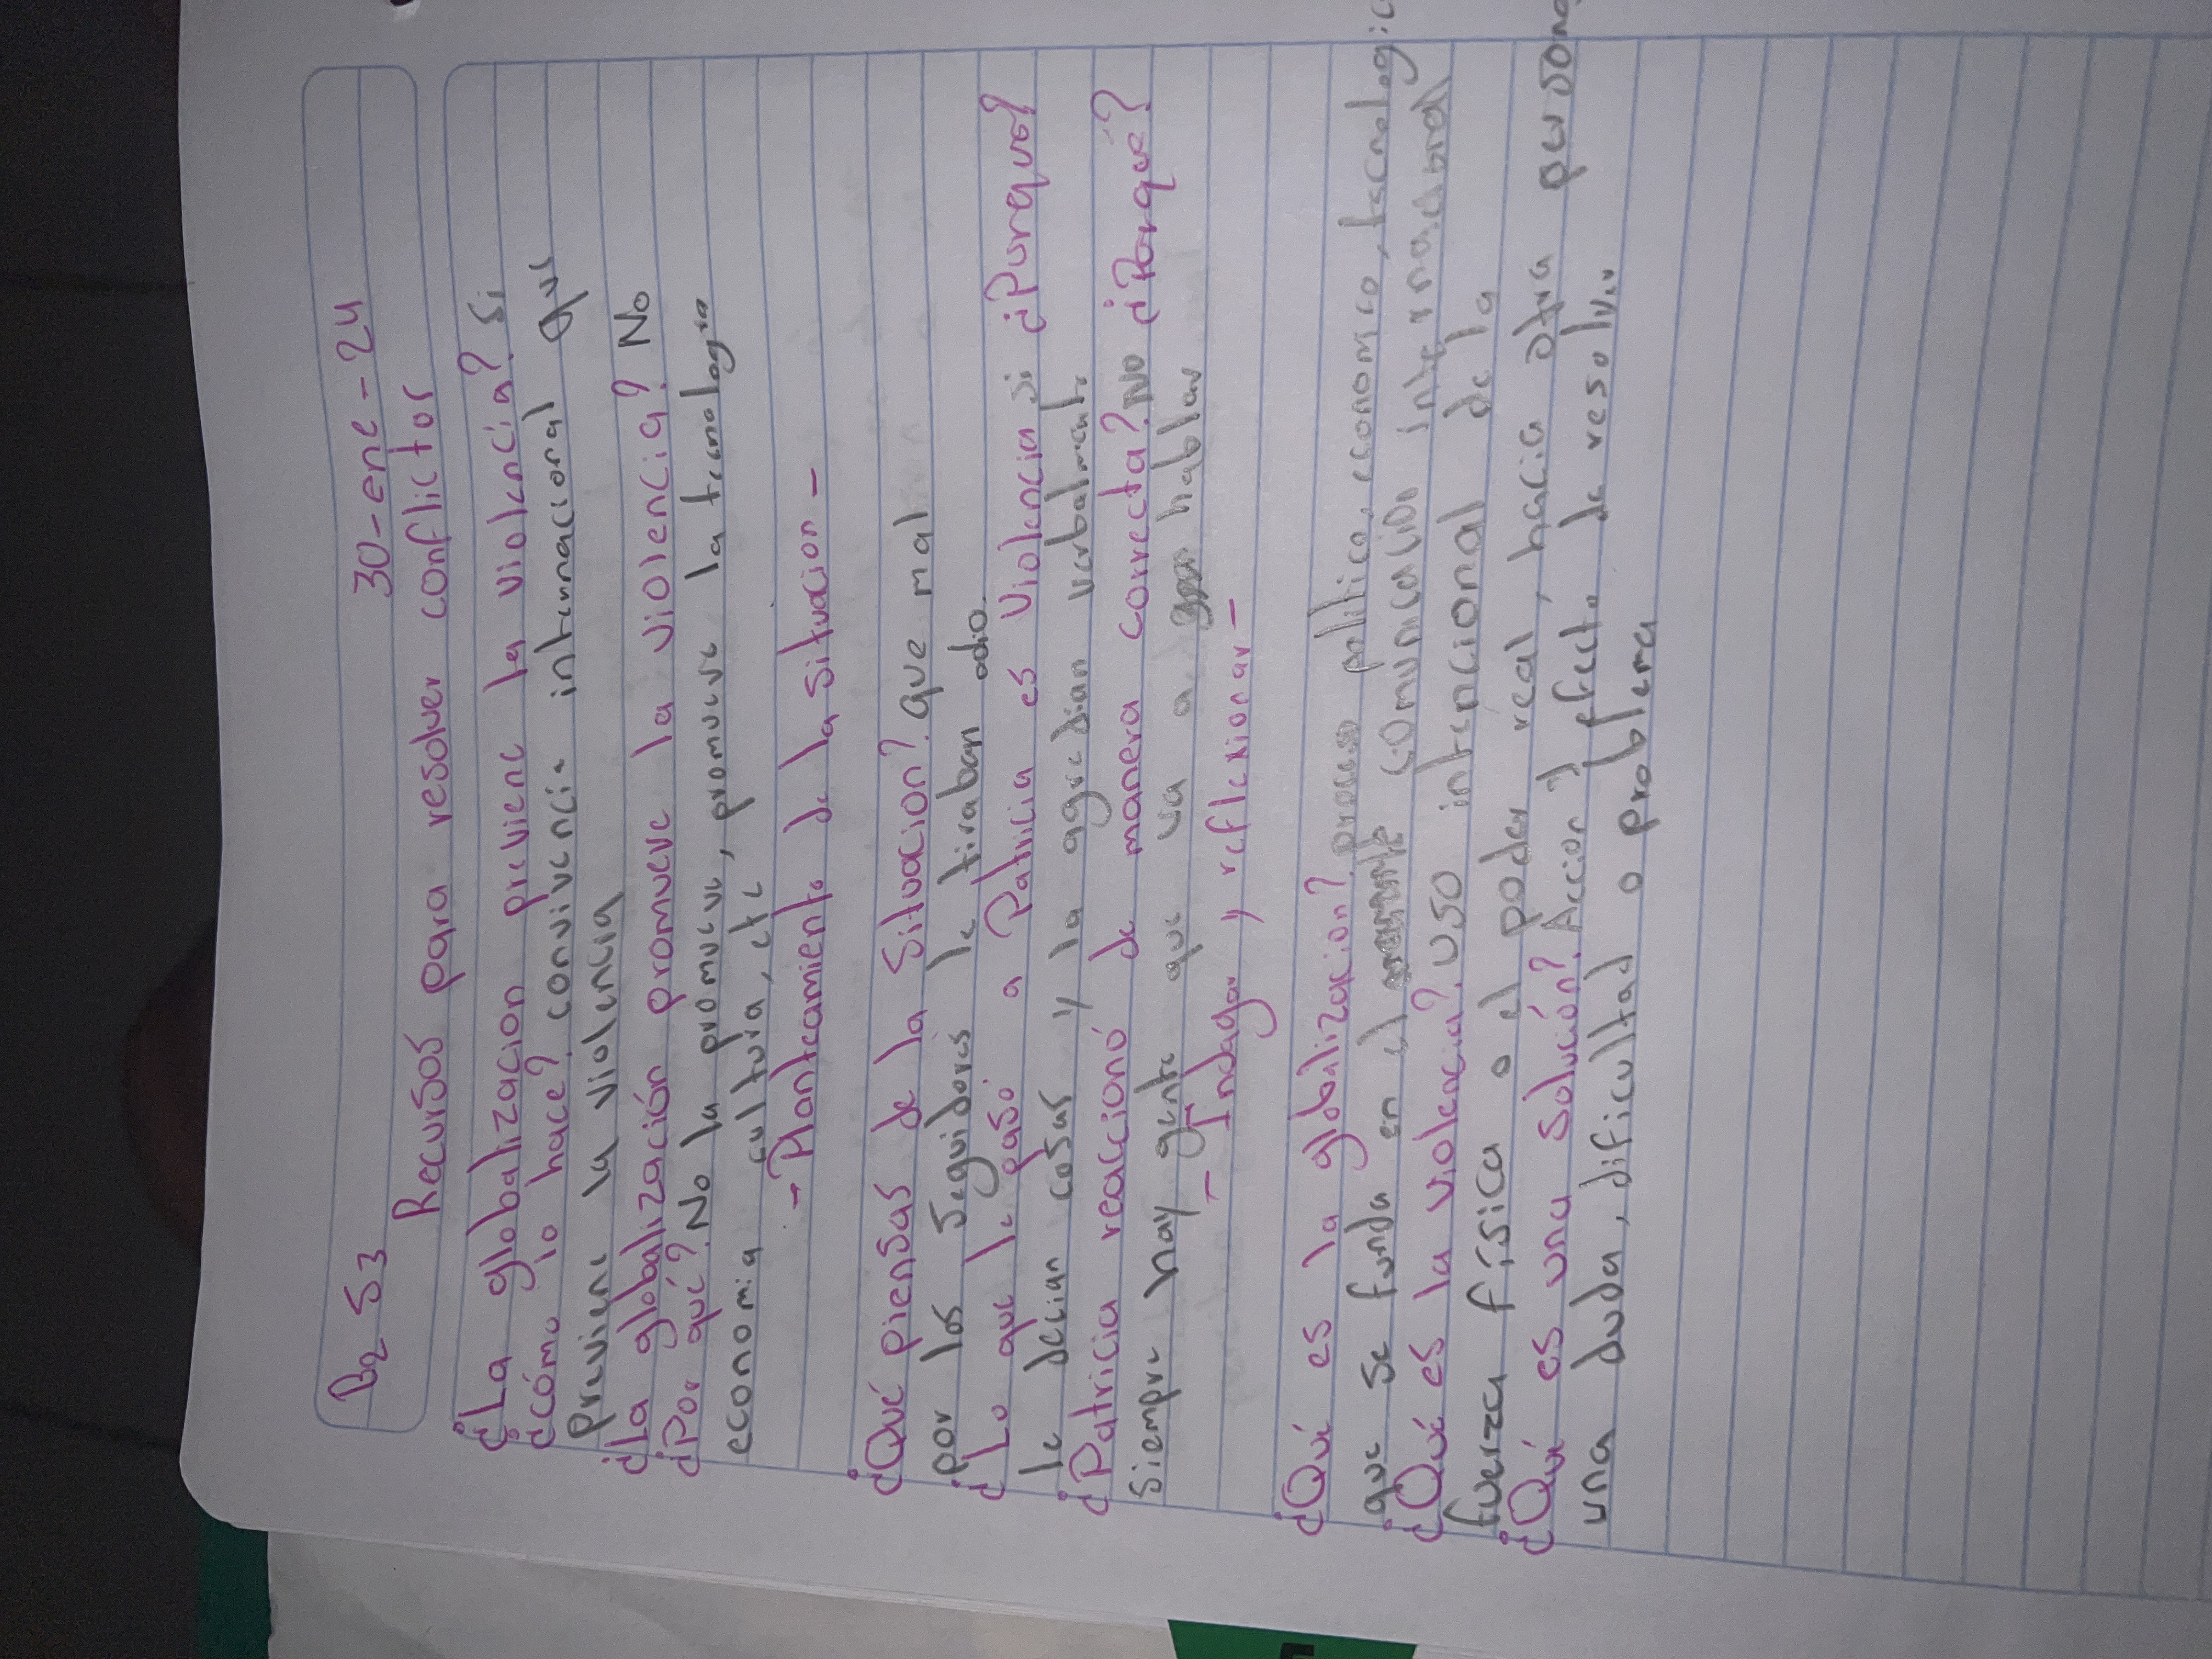 B2 S3 30-ene-24
Recursos para resolver conflictos
¿La globalizacion previene la violencia? Si
¿cómo lo hace? convivencia internnacional que
previene la violencia
¿la globalización promueve la violencia? No
¿Por qué? No la promueve, promueve la tecnologia
economia cultura, etc
- Planteamiento de la situacion -
¿Qué piensas de la situacion? que mal
por los seguidores le tiraban odio.
¿Lo que le pasó a Patricia es violencia si ¿Porqué?
le decian cosas y la agredian verbalmente
¿Patricia reaccionó de manera correcta? No ¿Porqué?
siempre hay gente que va a hablar
- Indagar y reflexionar -
¿Qué es la globalizacion? proceso politico, economico, tecnologic
que se funda en el comunicacion internacional
¿Qué es la violencia? uso intencional de la
fuerza física o el poder real, hacia otra persona
¿Qué es una solución? Accion y efecto de resolver
una duda, dificultad o problema